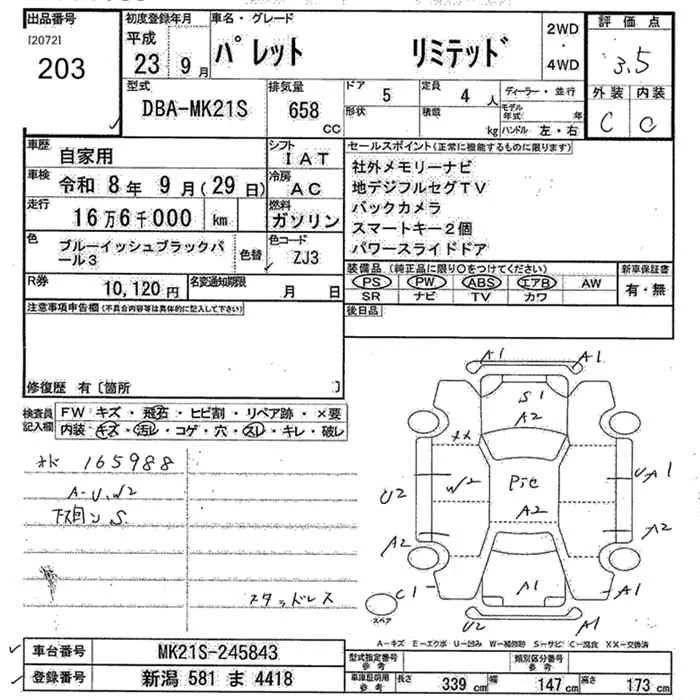 出品番号
[20721
203
初度登録年月
平成
23 9 月
車名・グレード
パレット リミテッド
2WD
・
4WD
評価点
3.5
外装 内装
C C
型式
DBA-MK21S
排気量
658
CC
ドア
5
定員
4 人
形状
積載
kg
ディーラー・並行
モデル年式 年
ハンドル 左・右
車歴
自家用
シフト
IAT
車検
令和 8年 9月(29日)
冷房
AC
走行
16万6千000 km
燃料
ガソリン
色
ブルーイッシュブラックパール3
色替
色コード
ZJ3
R券
10,120 円
名変期限
月 日
セールスポイント(正常に機能するものに限ります)
社外メモリーナビ
地デジフルセグTV
バックカメラ
スマートキー2個
パワースライドドア
装備品(純正品に限り○をつけてください)
PS PW ABS エアB AW
SR ナビ TV カワ
新車保証書
有・無
後日品
注意事項申告欄(不具合内容等は具体的に記入して下さい)
修復歴 有〔箇所 〕
検査員記入欄
FW キズ・飛石・ヒビ割・リペア跡・×要
内装・キズ・汚レ・コゲ・穴・スレ・キレ・破レ
165988
A-U.W2
S.
スタッドレス
A1 A1
S1
A2
XX
W2
Pic
A2
U2
A2
C1
UA1
A2
A1
A1
U2
A1
スペア
A-キズ E-エクボ U-凹み W-補修跡 S-サビ C-腐食 XX-交換済
車台番号
MK21S-245843
登録番号
新潟 581 ま 4418
型式指定番号
参考
類別区分番号
参考
車庫証明用
参考
長さ 339 cm 幅 147 cm 高さ 173 cm